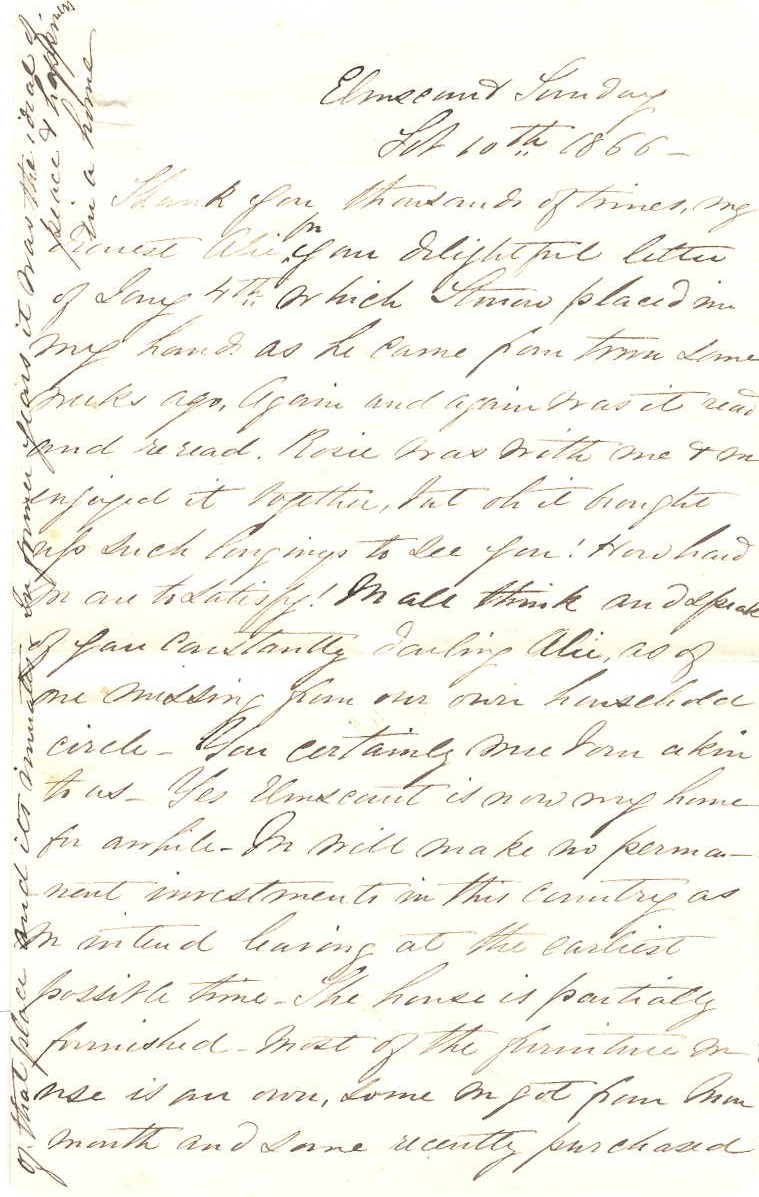 Elmscourt Sunday
Feb 10th 1866 -
Thank you thousands of times, my
dearest Alie, for your delightful letter
of Jany 4th which placed in
my hands as he came from town some
weeks ago. Again and again was it read
and reread. Rosie was with me & we
enjoyed it together, but oh it brought
up such longings to see you! How hard
we are to satisfy! We all think and speak
of you constantly darling Alie, as of
one missing from our own household
circle - You certainly were born akin
to us - Yes Elmscourt is now my home
for awhile - We will make no perma-
nent investments in this country as
we intend leaving at the earliest
possible time - The house is partially
furnished - most of the furniture we
use is our own, some we got from Mon
mouth and some recently purchased
of that place and its inmates - In former years it was the ideal of
peace & happiness
in a home